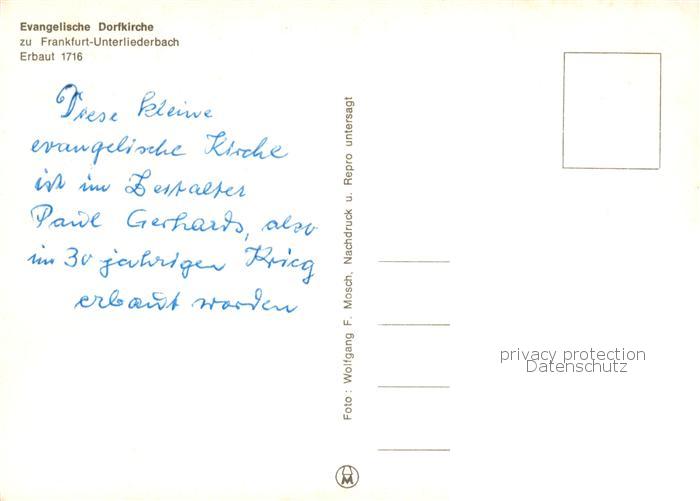 Evangelische Dorfkirche
zu Frankfurt-Unterliederbach
Erbaut 1716
Diese kleine
evangelische Kirche
ist im Zeitalter
Paul Gerhards, also
im 30 jährigen Krieg
erbaut worden
Foto: Wolfgang F. Mosch, Nachdruck u. Repro untersagt
privacy protection
Datenschutz
M